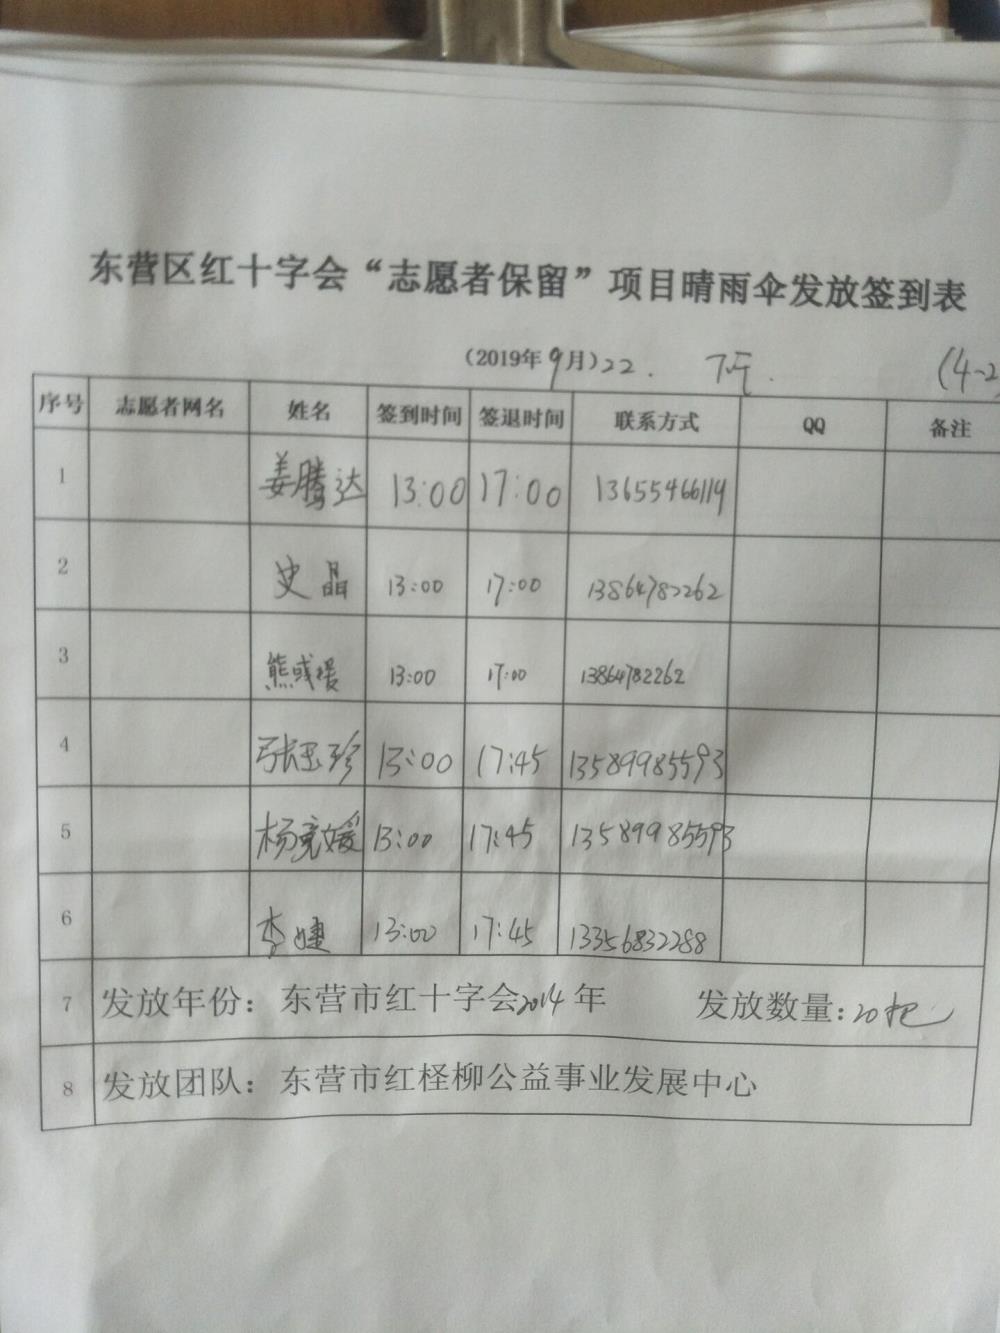 东营区红十字会“志愿者保留”项目晴雨伞发放签到表
（2019年9月）22． 下午． (4-2
序号 志愿者网名 姓名 签到时间 签退时间 联系方式 QQ 备注
1 姜腾达 13:00 17:00 13655466119
2 史晶 13:00 17:00 13864782262
3 熊彧媛 13:00 17:00 13864782262
4 张玉珍 13:00 17:45 13589985593
5 杨竞媛 13:00 17:45 13589985593
6 李婕 13:00 17:45 13356832288
7 发放年份：东营市红十字会2014年 发放数量：20把
8 发放团队：东营市红柽柳公益事业发展中心